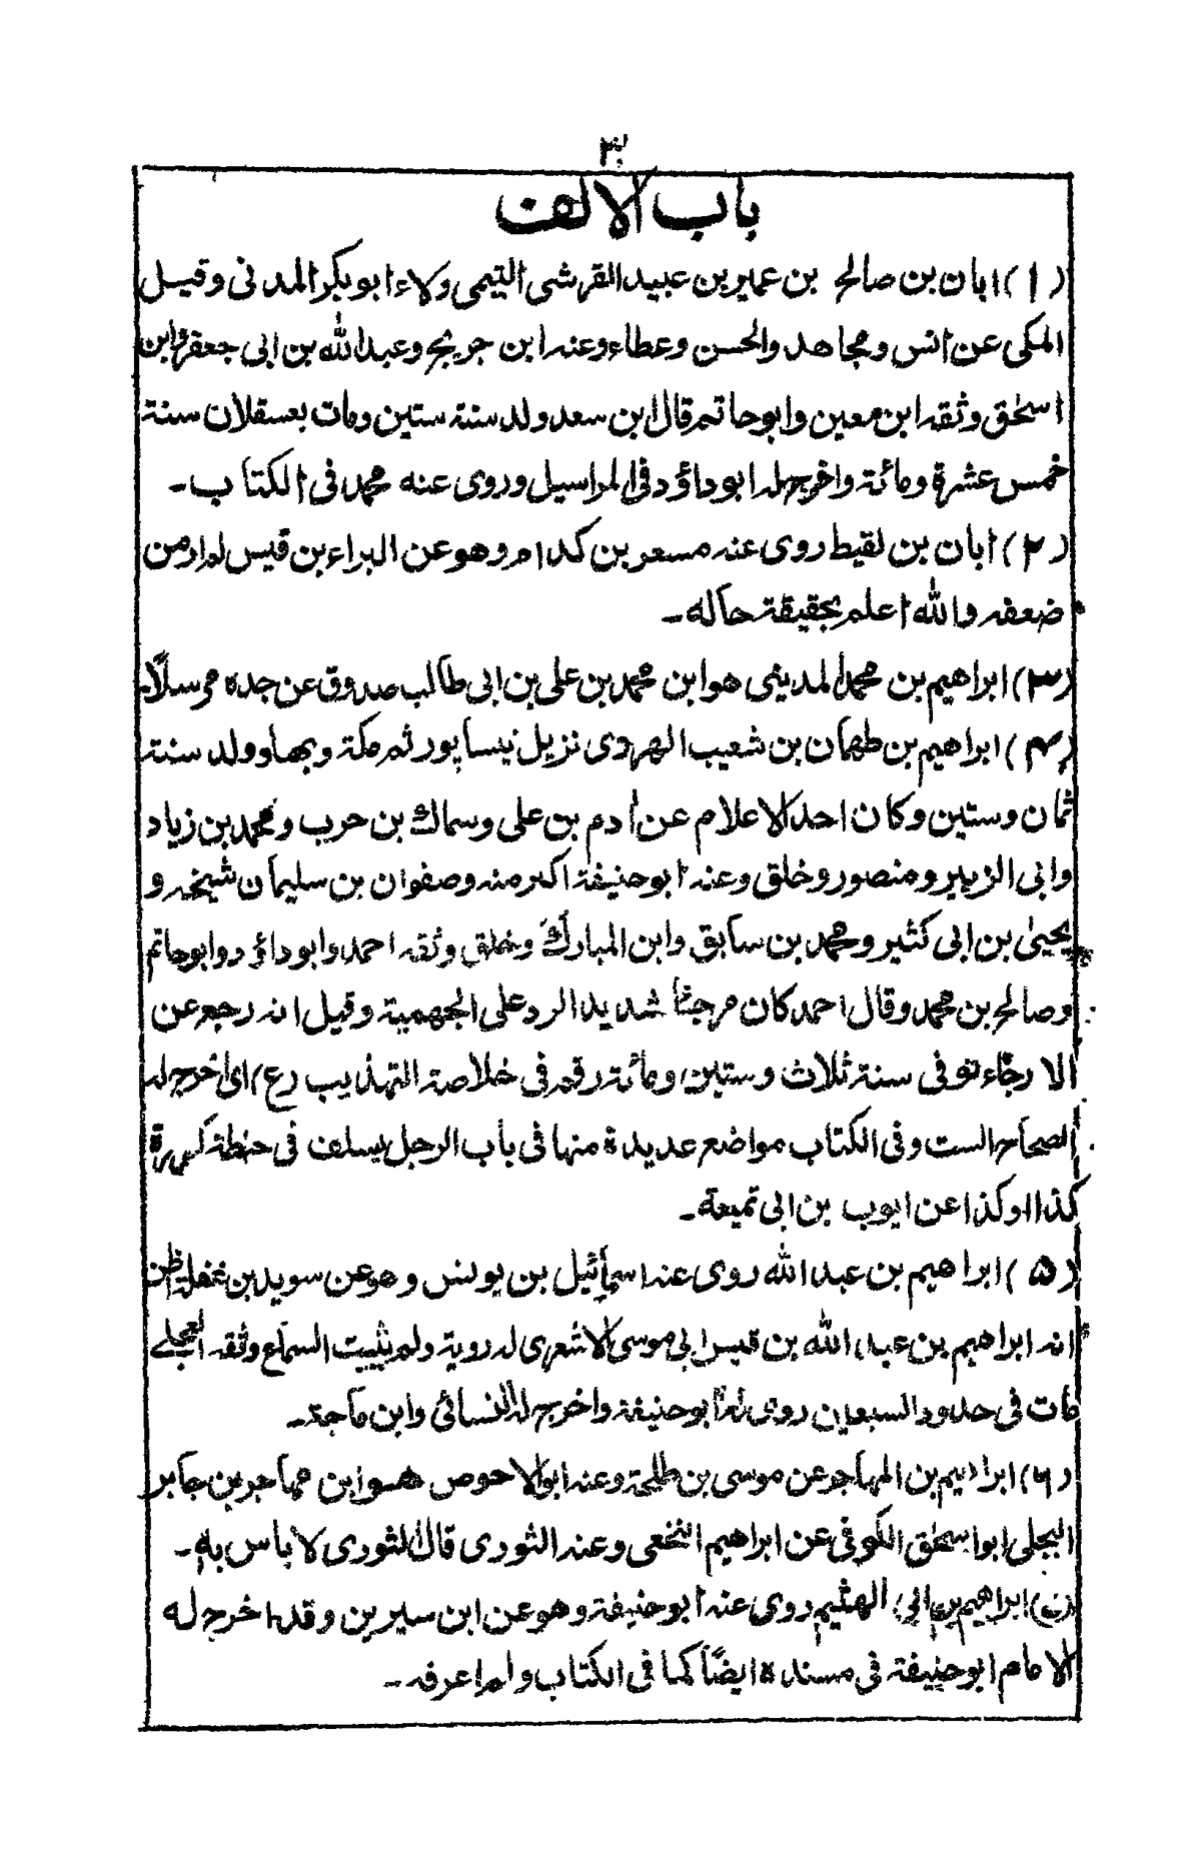 ٣
باب الالف
(١) ابان بن صالح بن عمير بن عبيد القرشى التيمى ولاء ابو بكر المدنى وقيل
المكى عن انس ومجاهد والحسن وعطاء وعنه ابن جريج وعبد الله بن ابى جعفر وابن
اسحٰق وثقه ابن معين وابو حاتم قال ابن سعد ولد سنة ستين ومات بعسقلان سنة
خمس عشرة ومائة واخرج له ابو داؤد فى المراسيل وروى عنه محمد فى الكتاب ـ
(٢) ابان بن لقيط روى عنه مسعر بن كدام وهو عن البراء بن قيس لم ار من
ضعفه والله اعلم بحقيقة حاله ـ
(٣) ابراهيم بن محمد المدينى هو ابن محمد بن على بن ابى طالب صدوق عن جده مرسلاً
(٤) ابراهيم بن طهمان بن شعيب الهروى نزيل نيساپور ثم مكة وبها وولد سنة
ثمان وستين وكان احد الاعلام عن ادم بن على وسماك بن حرب ومحمد بن زياد
وابى الزبير ومنصور وخلق وعنه ابو حنيفة اكبر منه وصفوان بن سليمان شيخه و
يحيىٰ بن ابى كثير ومحمد بن سابق وابن المبارك وخلق وثقه احمد وابو داؤد وابو حاتم
وصالح بن محمد وقال احمد كان مرجئا شديد الرد على الجهمية وقيل انه رجع عن
الارجاء توفى سنة ثلاث وستين ومائة رقمه فى خلاصة التهذيب (ع) اى اخرج له
الصحاح الست وفى الكتاب مواضع عديدة منها فى باب الرجل يسلف فى حنطة
كذا اوكذا عن ايوب بن ابى تميمة ـ
(٥) ابراهيم بن عبد الله روى عنه اسمائيل بن يونس وهو عن سويد بن غفلة اظن
انه ابراهيم بن عبد الله بن قيس ابى موسى الاشعرى له روية ولم يثبت السماع وثقه العجلى
مات فى حدود السبعين روى له ابو حنيفة واخرج له النسائى وابن ماجة ـ
(٦) ابراهيم بن المهاجر عن موسى بن طلحة وعنه ابو الاحوص هو ابن مهاجر بن جابر
البجلى ابو اسحٰق الكوفى عن ابراهيم النخعى وعنه الثورى قال الثورى لا باس به ـ
ابراهيم بن ابى الهثيم روى عنه ابو حنيفة وهو عن ابن سيرين وقد اخرج له
الامام ابو حنيفة فى مسنده ايضًا كما فى الكتاب ولم اعرفه ـ